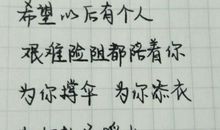 希望以后有个人
艰难险阻都陪着你
为你撑伞 为你添衣